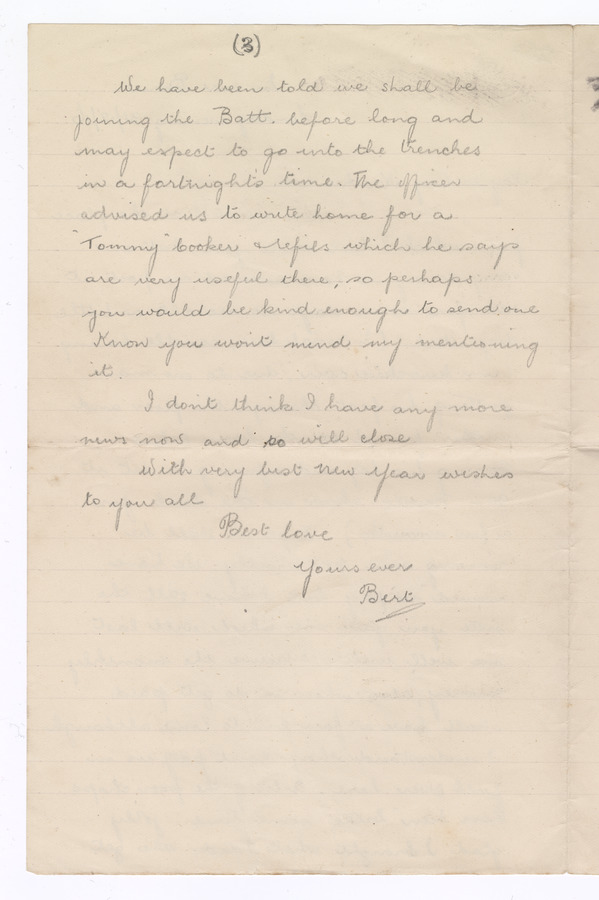 (3)
We have been told we shall be
joining the Batt. before long and
may expect to go into the trenches
in a fortnights time. The officer
advised us to write home for a
"Tommy" Cooker & refils which he says
are very useful there, so perhaps
you would be kind enough to send one
Know you wont mind my mentioning
it.
I dont think I have any more
news now and so will close
With very best New Year wishes
to you all
Best love
Yours ever
Bert